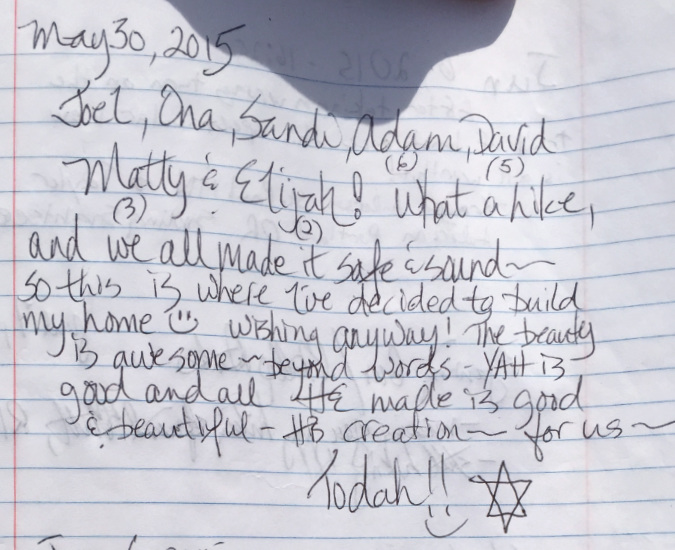 May 30, 2015
Joel, Ona, Sandi, Adam, David
(6) (5)
Matty & Elijah! What a hike,
(3) (2)
and we all made it safe & sound~
so this is where I've decided to build
my home ☺ wishing anyway! The beauty
is awesome ~ beyond words - YAH is
good and all HE made is good
& beautiful - HIS creation ~ for us ~
Todah!! ☺ ✡